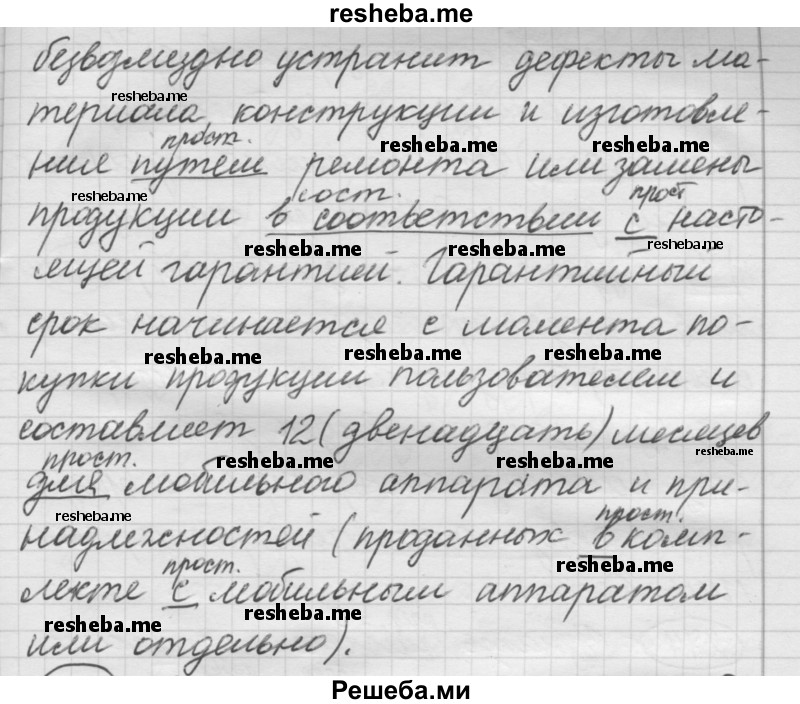 resheba.me
безвозмездно устранит дефекты ма-
resheba.me
териала, конструкции и изготовле-
прост.
resheba.me resheba.me
ние путем ремонта или замены
resheba.me сост. прост
продукции в соответствии с насто-
resheba.me resheba.me resheba.me
ящей гарантией. Гарантийный
срок начинается с момента по-
resheba.me resheba.me resheba.me
купки продукции пользователем и
составляет 12 (двенадцать) месяцев
прост. resheba.me resheba.me resheba.me
для мобильного аппарата и при-
resheba.me прост.
надлежностей (проданных в комп-
прост. resheba.me resheba.me
лекте с мобильным аппаратом
resheba.me resheba.me resheba.me
или отдельно).
Решеба.ми